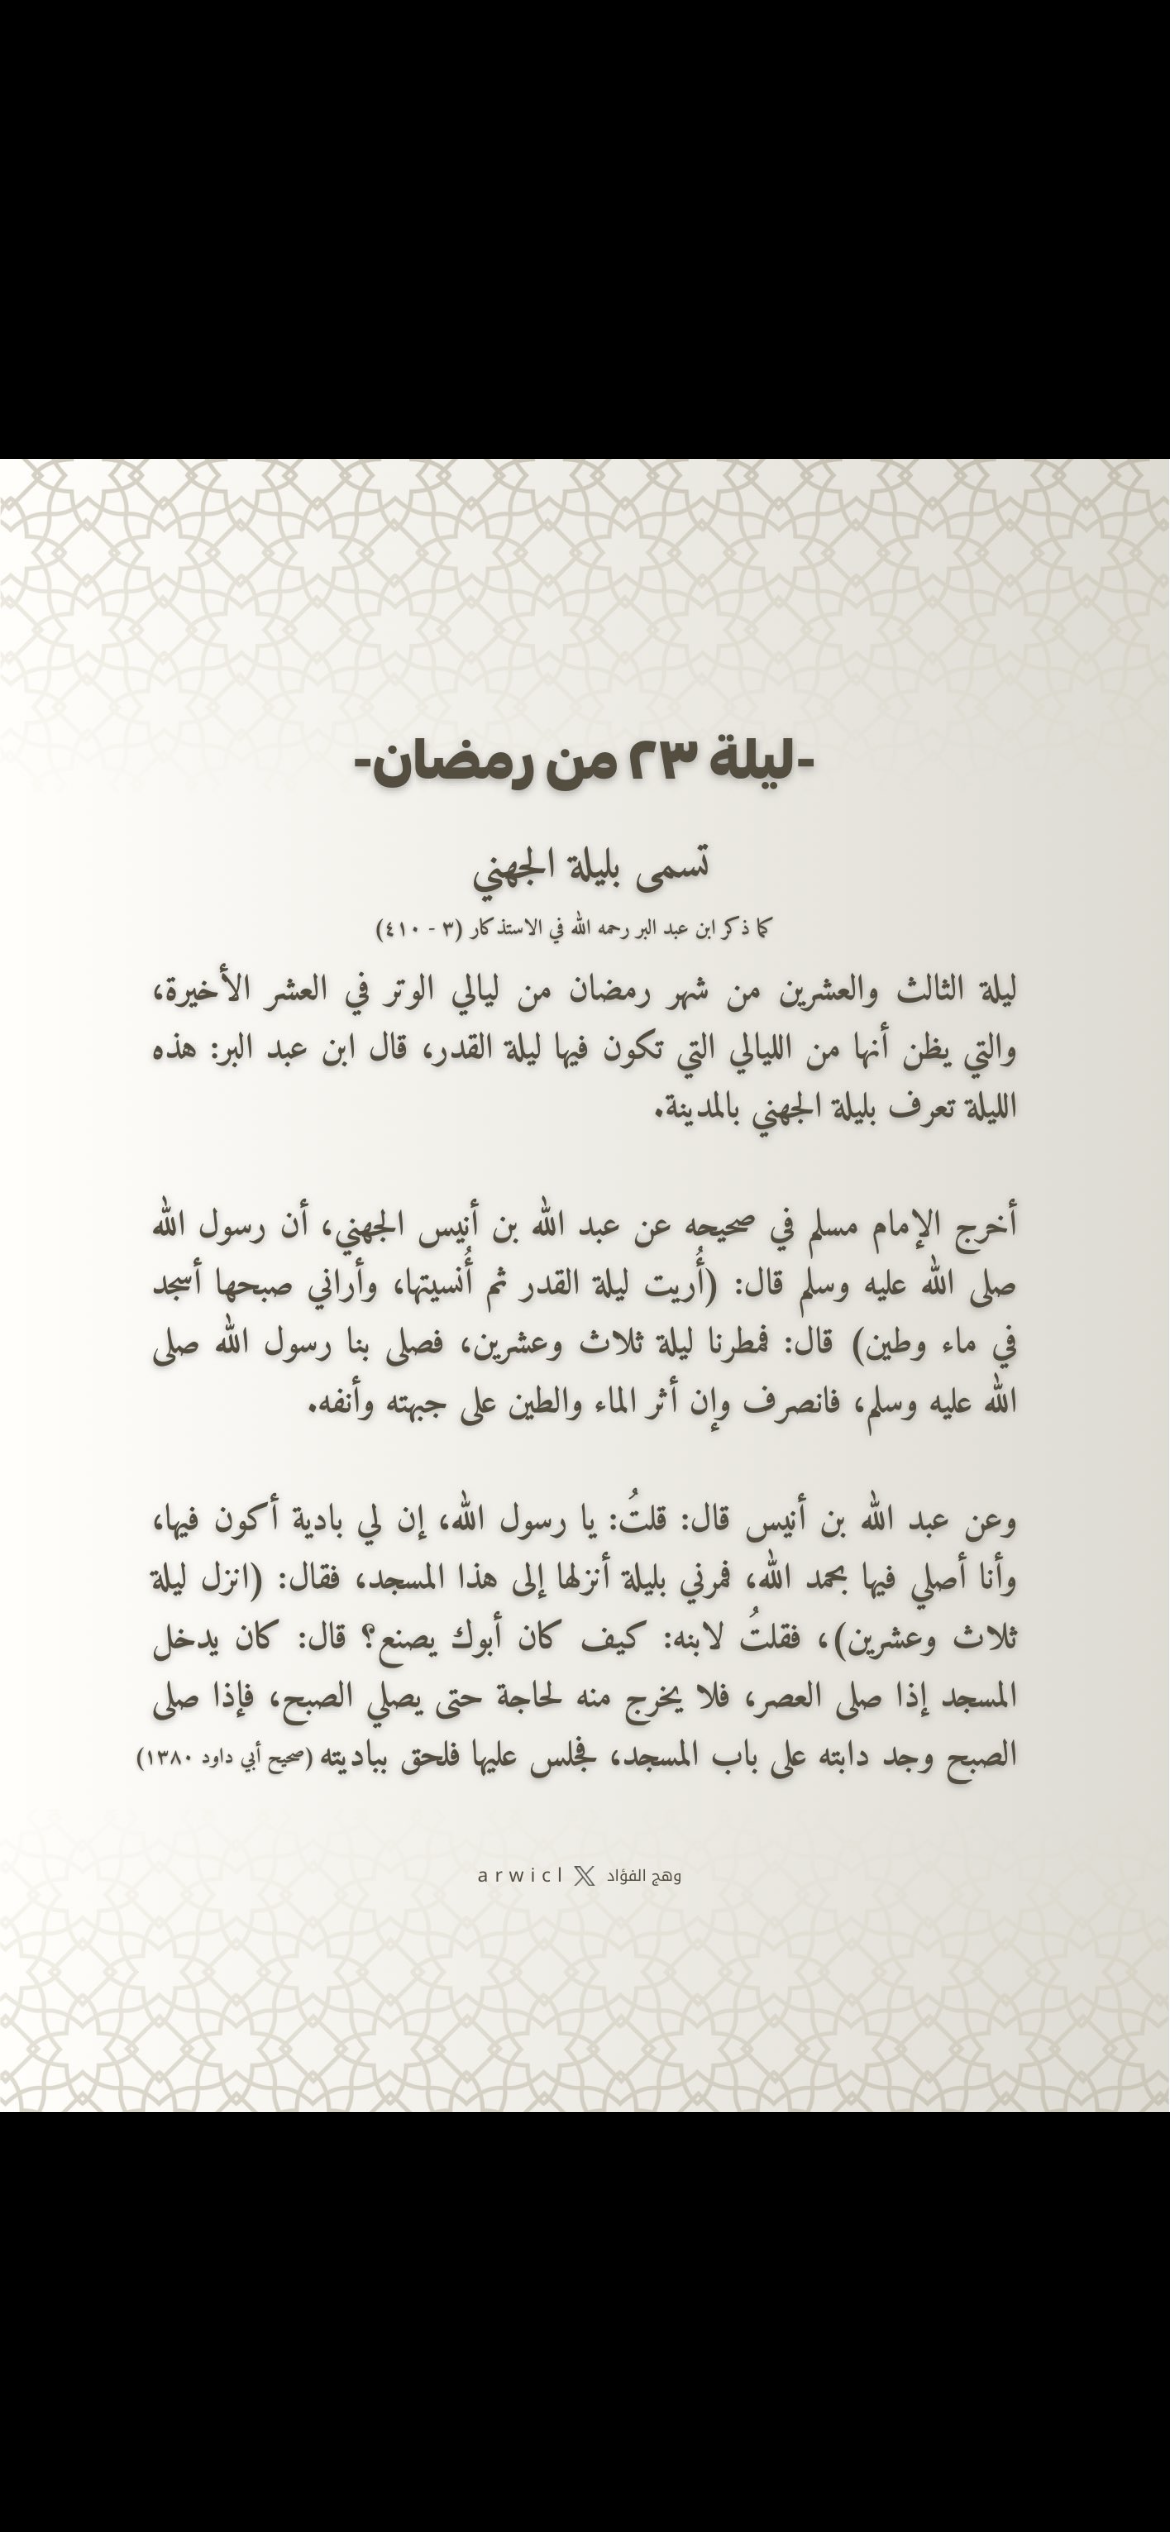 -ليلة ٢٣ من رمضان-
تسمى بليلة الجهني
كما ذكر ابن عبد البر رحمه الله في الاستذكار (٣ - ٤١٠)
ليلة الثالث والعشرين من شهر رمضان من ليالي الوتر في العشر الأخيرة،
والتي يظن أنها من الليالي التي تكون فيها ليلة القدر، قال ابن عبد البر: هذه
الليلة تعرف بليلة الجهني بالمدينة.
أخرج الإمام مسلم في صحيحه عن عبد الله بن أنيس الجهني، أن رسول الله
صلى الله عليه وسلم قال: (أُريت ليلة القدر ثم أُنسيتها، وأراني صبحها أسجد
في ماء وطين) قال: فمطرنا ليلة ثلاث وعشرين، فصلى بنا رسول الله صلى
الله عليه وسلم، فانصرف وإن أثر الماء والطين على جبهته وأنفه.
وعن عبد الله بن أنيس قال: قلتُ: يا رسول الله، إن لي بادية أكون فيها،
وأنا أصلي فيها بحمد الله، فمرني بليلة أنزلها إلى هذا المسجد، فقال: (انزل ليلة
ثلاث وعشرين)، فقلتُ لابنه: كيف كان أبوك يصنع؟ قال: كان يدخل
المسجد إذا صلى العصر، فلا يخرج منه لحاجة حتى يصلي الصبح، فإذا صلى
الصبح وجد دابته على باب المسجد، فجلس عليها فلحق بباديته (صحيح أبي داود ١٣٨٠)
وهج الفؤاد X arwicl